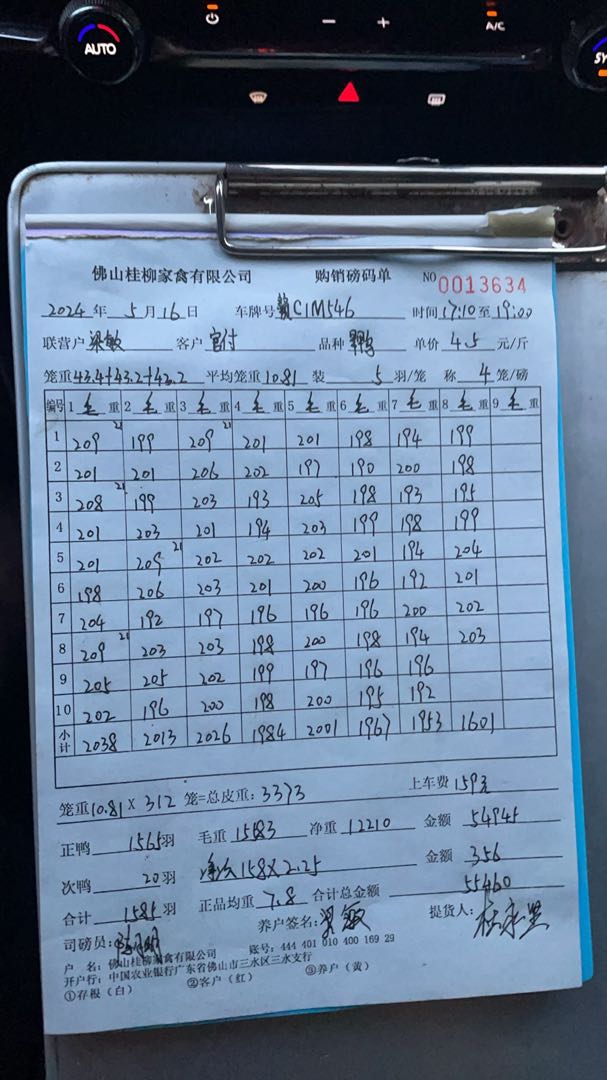 AUTO
A/C
佛山桂柳家禽有限公司 购销磅码单 NO 0013634
2024 年 5 月 16 日 车牌号 赣C1M546 时间 17:10 至 19:00
联营户 梁敏 客户 官付 品种 单价 4.5 元/斤
笼重 43.4+43.2+43.2 平均笼重 10.81 装 5 羽/笼 称 4 笼/磅
编号 1 毛 重 2 毛 重 3 毛 重 4 毛 重 5 毛 重 6 毛 重 7 毛 重 8 毛 重 9 毛 重
1 209 21 199 209 21 201 201 198 194 199
2 201 201 206 202 197 190 200 198
3 208 21 199 203 193 205 198 193 195
4 201 203 201 194 203 199 198 199
5 201 209 21 202 202 202 201 194 204
6 198 206 203 201 200 196 192 201
7 204 192 197 196 196 196 200 202
8 209 21 203 203 198 200 198 194 203
9 205 205 202 199 197 196 196
10 202 196 200 198 200 195 192
小计 2038 2013 2026 1984 2001 1967 1953 1601
笼重 10.81 × 312 笼=总皮重: 3373 上车费 159元
正鸭 1565 羽 毛重 15583 净重 12210 金额 54945
次鸭 20 羽 158×2.25 金额 356
合计 1585 羽 正品均重 7.8 合计总金额 55460
司磅员: 养户签名: 梁敏 提货人:
户 名: 佛山桂柳家禽有限公司 账号: 444 401 010 400 169 29
开户行: 中国农业银行广东省佛山市三水区三水支行
①存根(白) ②客户(红) ③养户(黄)